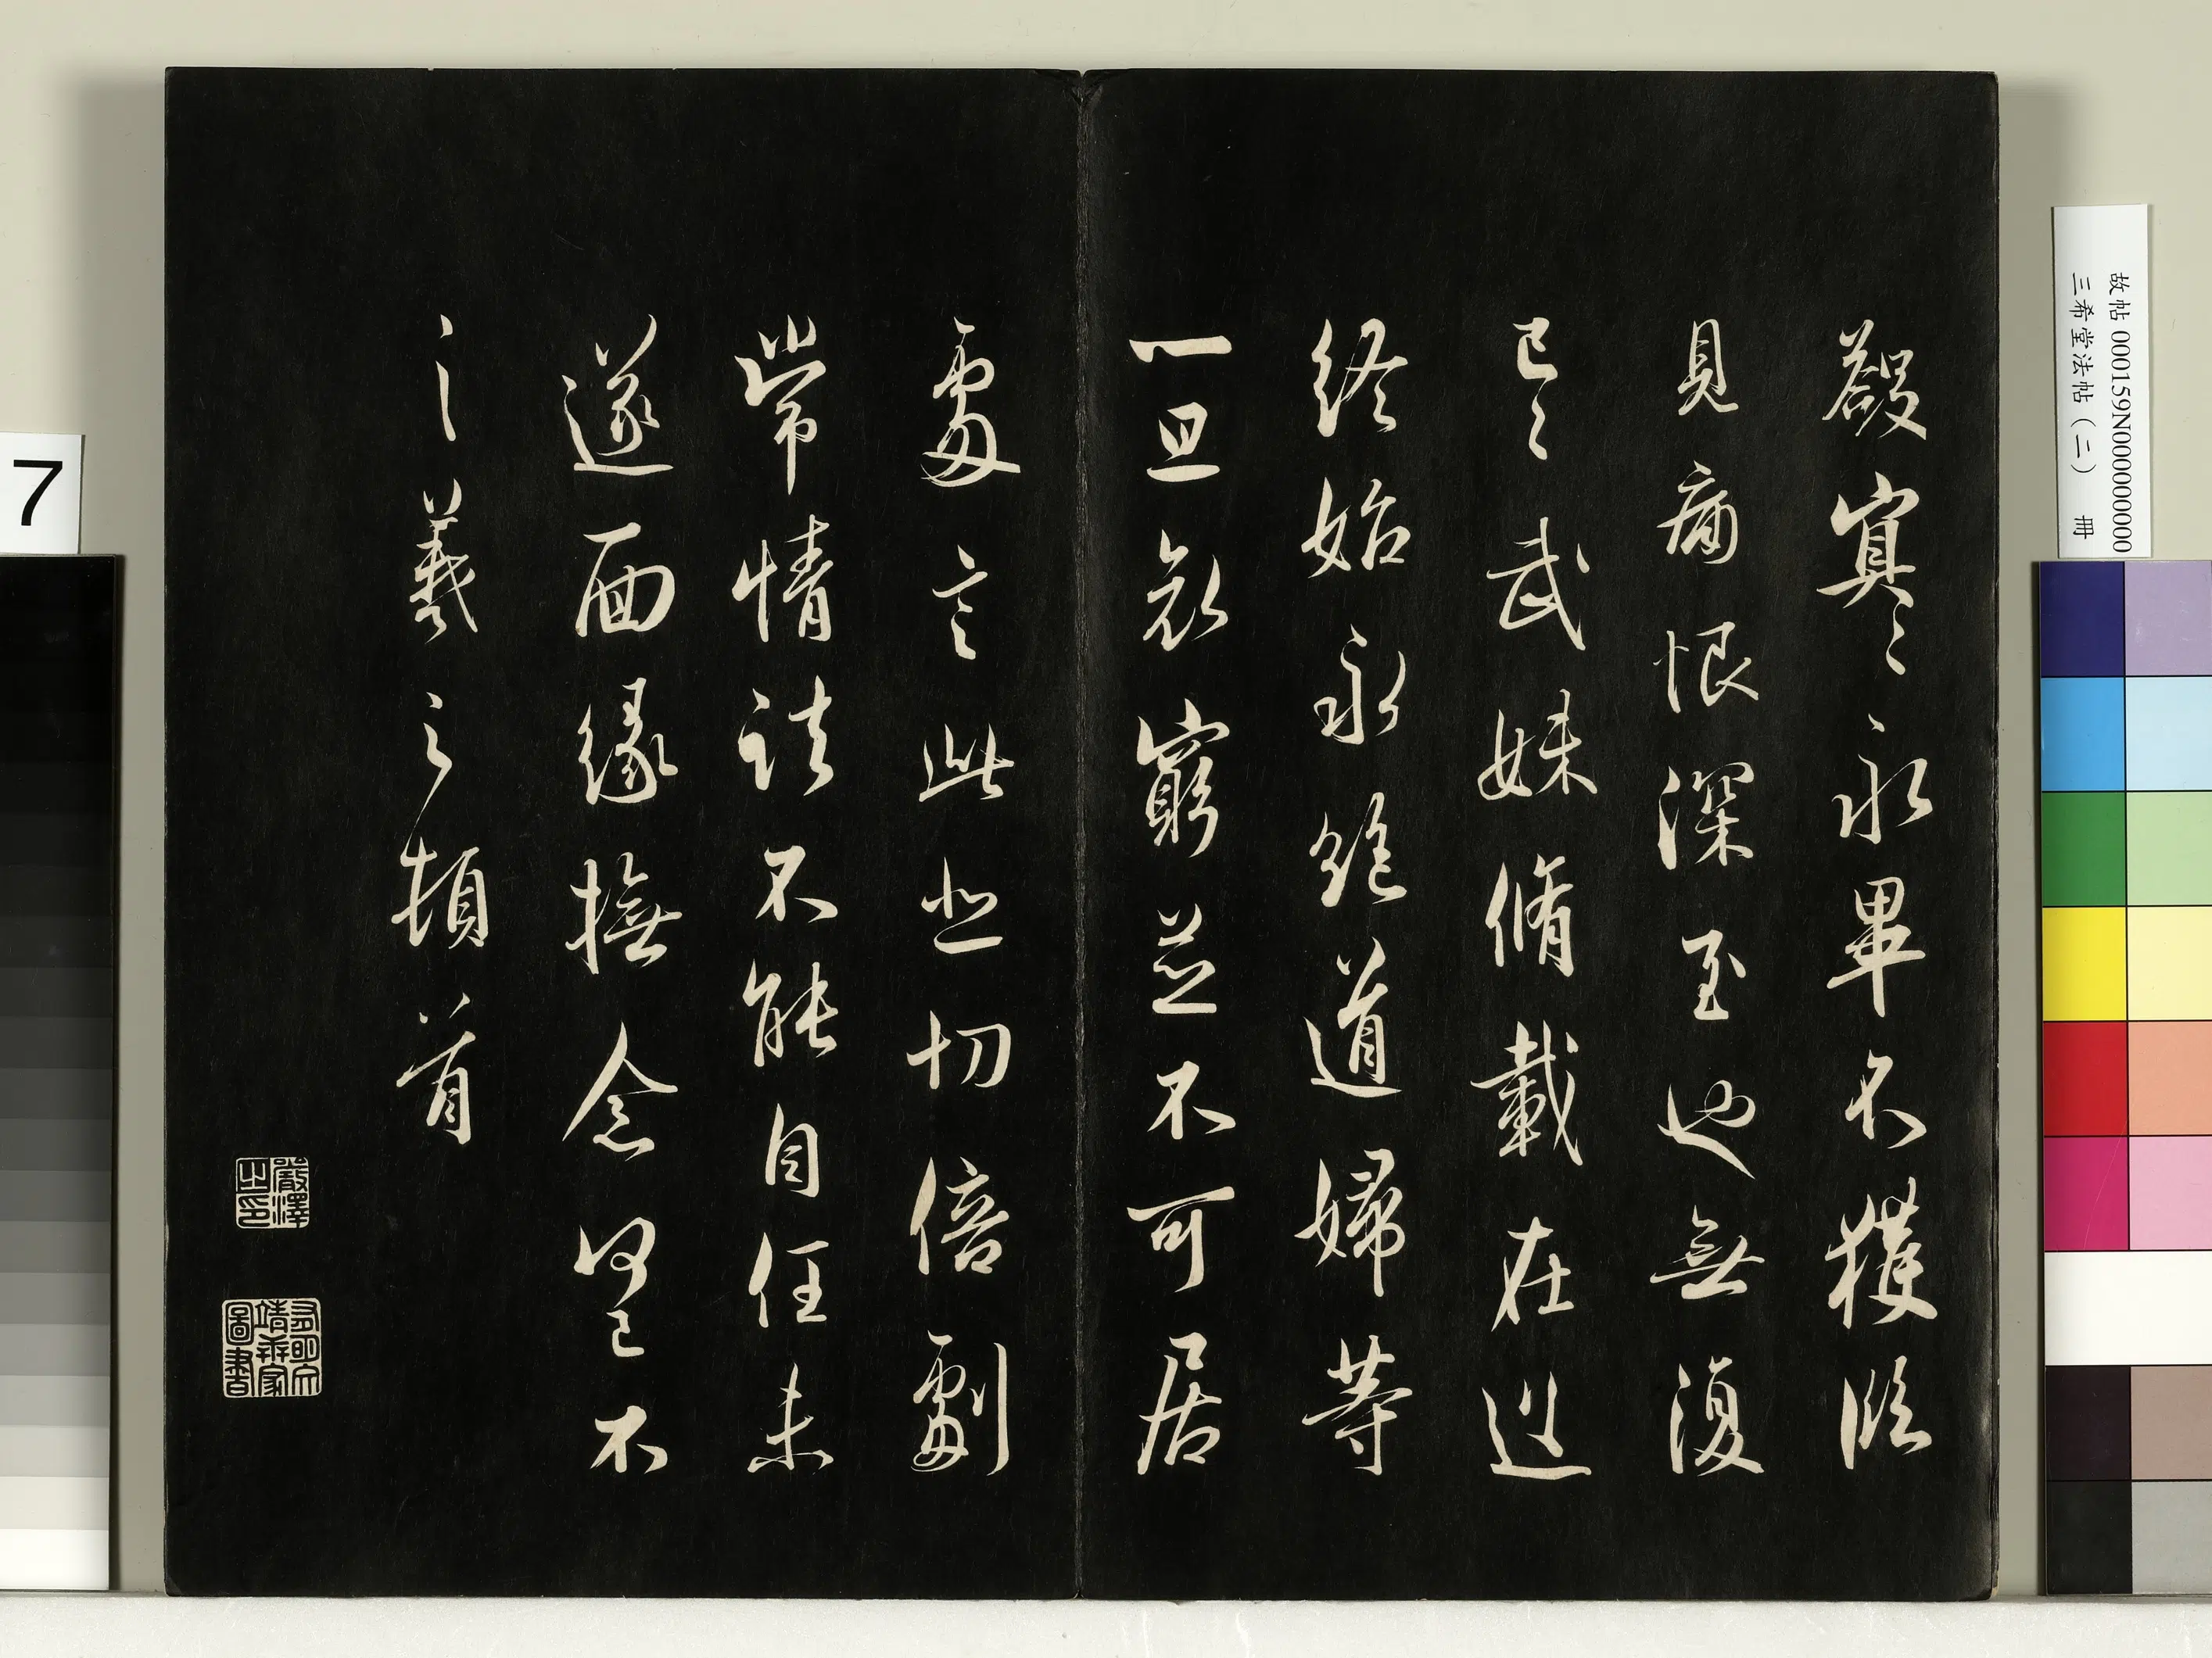 冥〻永畢不獲臨
見痛恨深至也無復
已〻武妹脩載在遠
終始永絕道婦等
一旦哀窮並不可居
處言此悲切倍劇
常情諸不能自任未
遂面緣撫念何已不
羲之頓首
嚴澤之印
圖書
故帖 000159N000000000
三希堂法帖（二） 冊
7